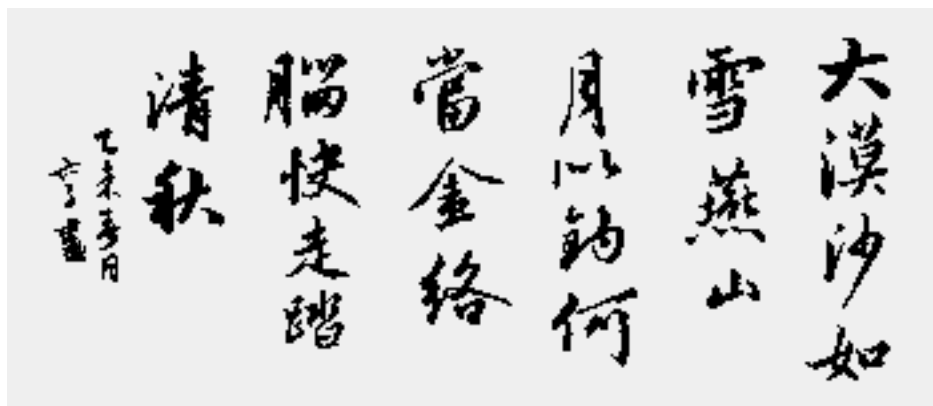 大漠沙如
雪燕山
月似鈎何
當金絡
腦快走踏
清秋
乙未春月
書